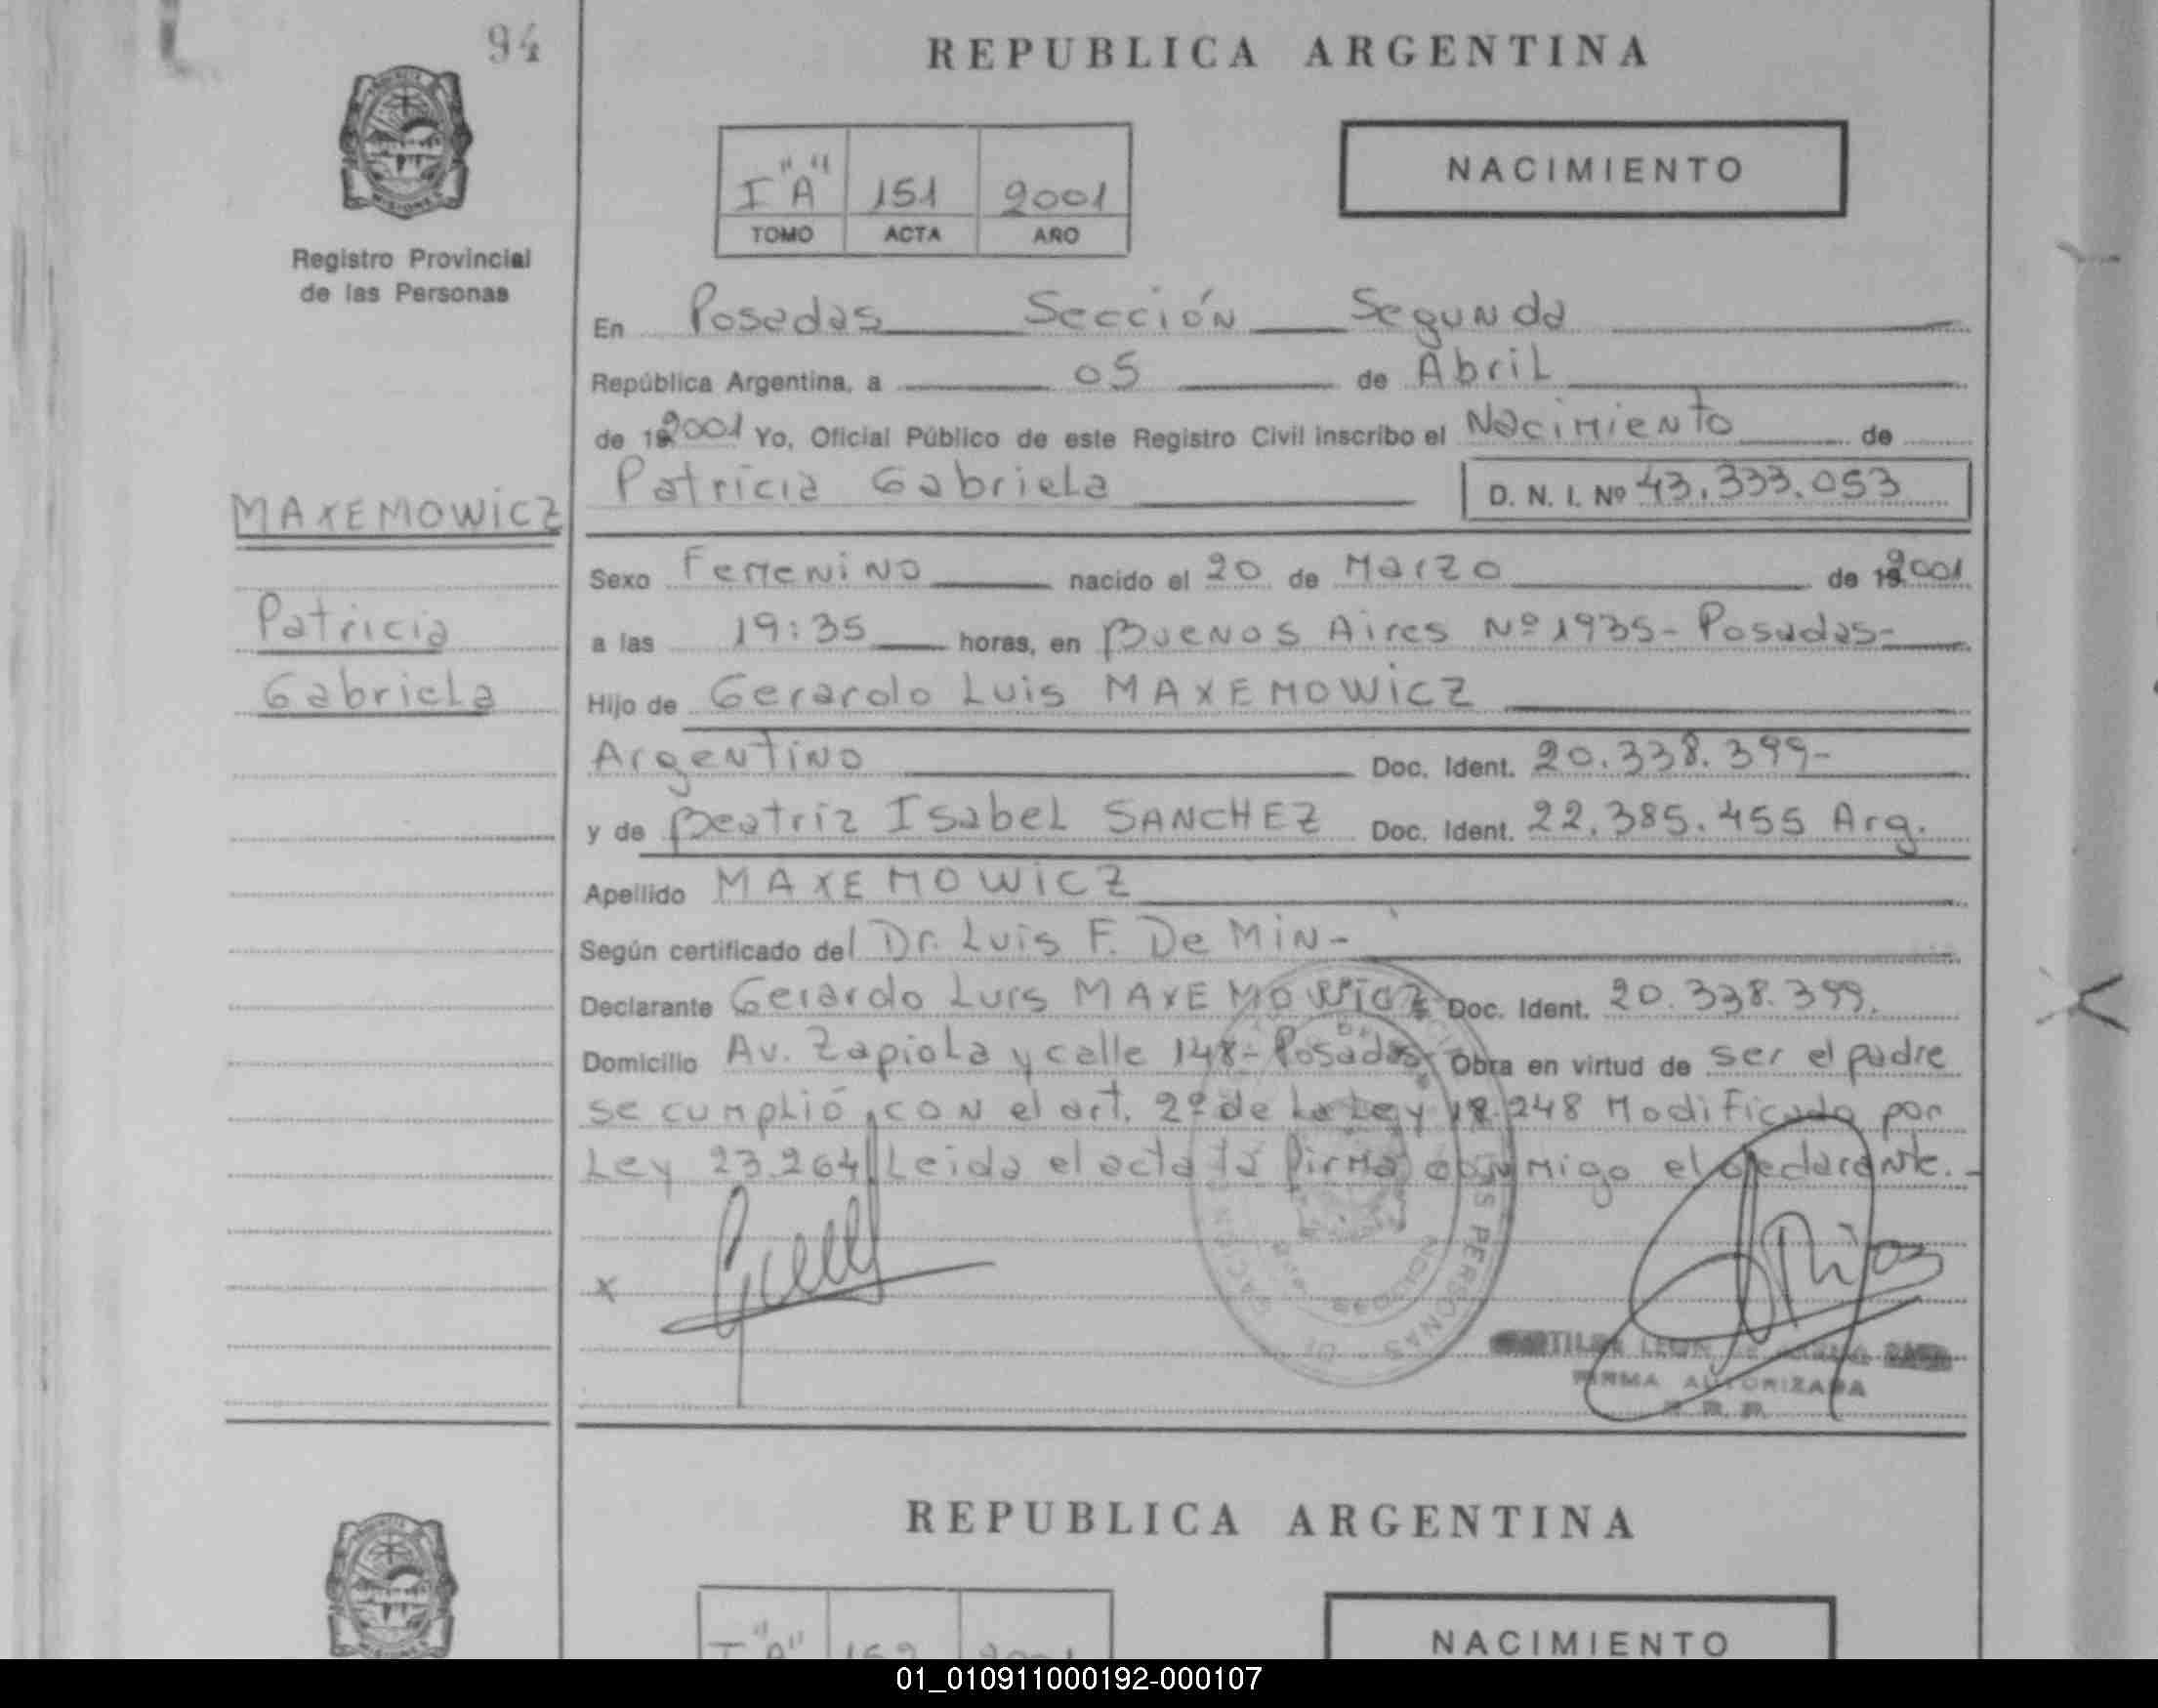 94
REPUBLICA ARGENTINA
NACIMIENTO
I "A" 151 2001
TOMO ACTA AÑO
Registro Provincial
de las Personas
En Posadas Sección Segunda
República Argentina, a 05 de Abril
de 192001 Yo, Oficial Público de este Registro Civil inscribo el Nacimiento de
Patricia Gabriela D. N. I. Nº 43.333.053
MAXEMOWICZ
Patricia
Gabriela
Sexo Femenino nacido el 20 de Marzo de 192001
a las 19:35 horas, en Buenos Aires Nº 1935- Posadas-
Hijo de Gerardo Luis MAXEMOWICZ
Argentino Doc. Ident. 20.338.399-
y de Beatriz Isabel SANCHEZ Doc. Ident. 22.385.455 Arg.
Apellido MAXEMOWICZ
Según certificado del Dr. Luis F. De Min-
Declarante Gerardo Luis MAXEMOWICZ Doc. Ident. 20.338.399.
Domicilio Av. Zapiola y calle 148- Posadas Obra en virtud de ser el padre
se cumplió con el art. 2º de la Ley 18.248 Modificada por
Ley 23.264 Leida el acta la firma conmigo el declarante.-
x
Rios
LEON DE
FIRMA AUTORIZADA
PERSONAS
REPUBLICA ARGENTINA
NACIMIENTO
I "A" 152 2001
01_010911000192-000107